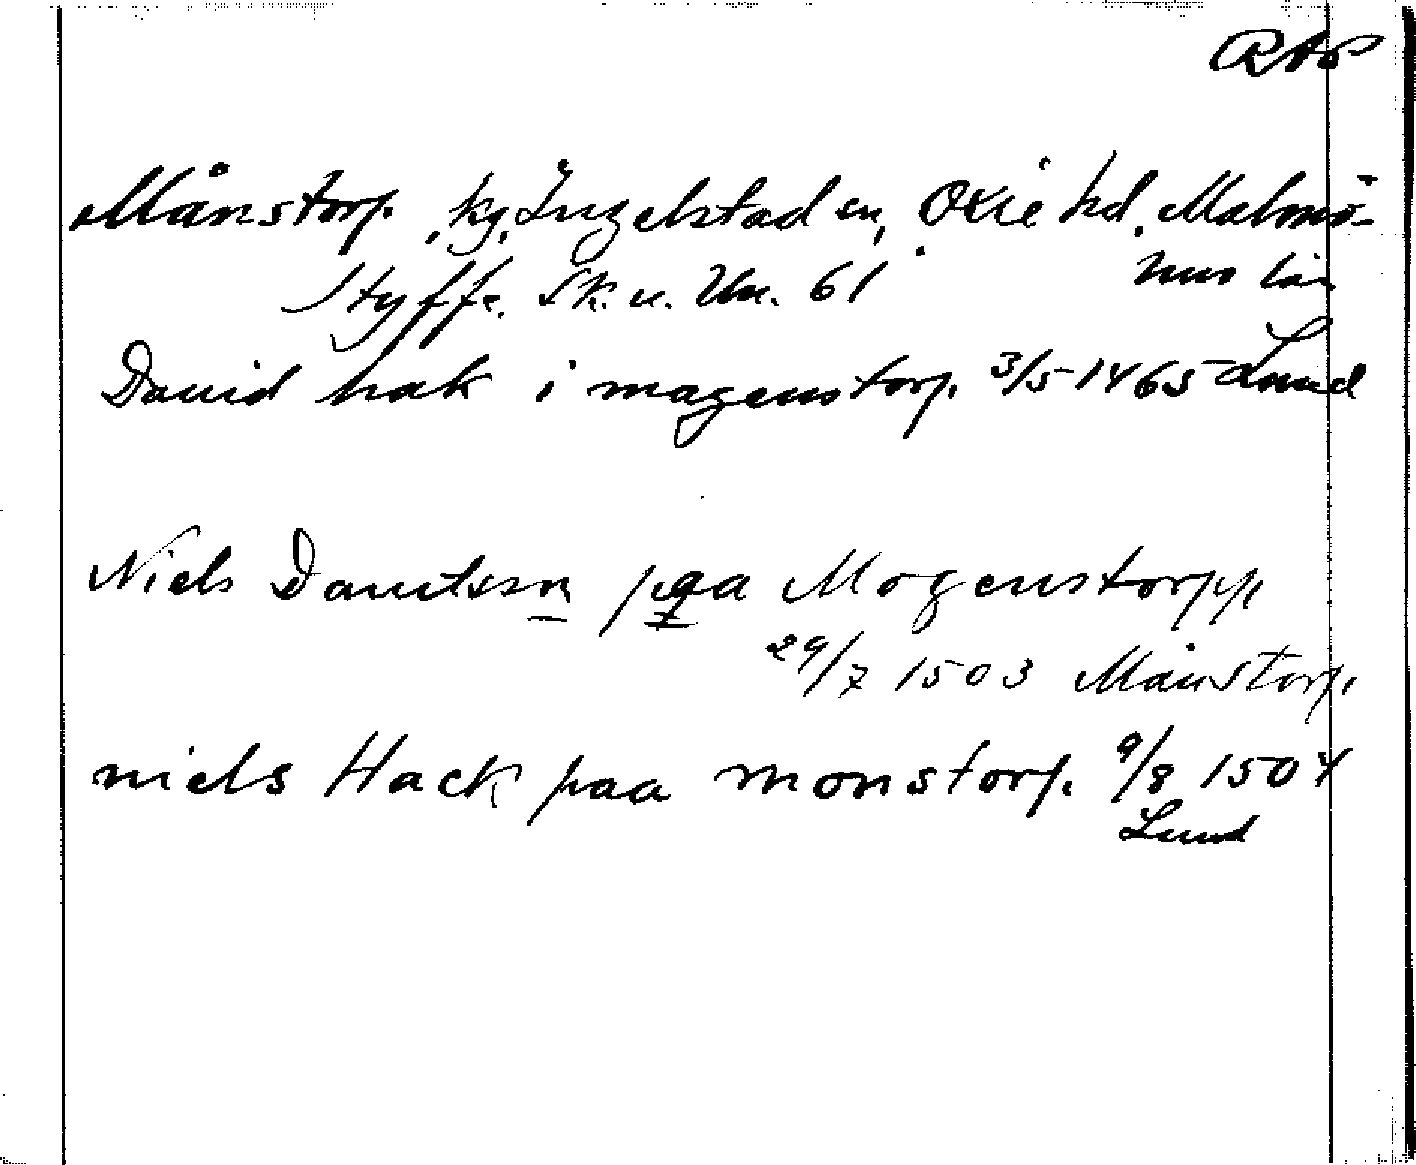 RAP
Månstorp, kg, Ingelstad sn, Oxie hd. Malmö-
hus län
Styffe, Sk. u. Un. 61
Dauid hak i magenstorp 3/5 1465 Lund
Niels Dauitssn paa Mogenstorpp
29/7 1503 Månstorp
niels Hack paa monstorp. 9/8 1504
Lund